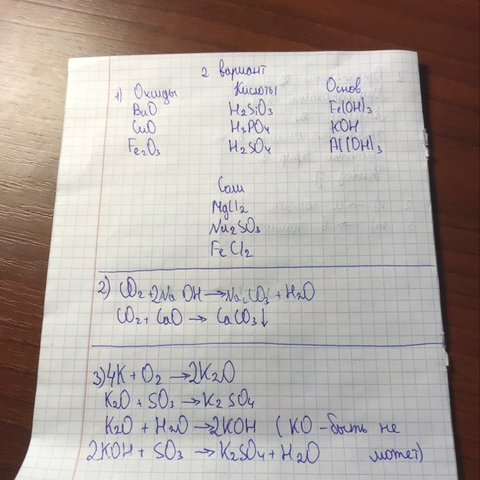 2 вариант
1) Оксиды Кислоты Основ
BaO H₂SiO₃ Fe(OH)₃
CuO H₃PO₄ KOH
Fe₂O₃ H₂SO₄ Al(OH)₃
Соли
MgCl₂
Na₂SO₃
FeCl₂
2) CO₂+2NaOH→Na₂CO₃+H₂O
CO₂+CaO→CaCO₃↓
3) 4K+O₂→2K₂O
K₂O+SO₃→K₂SO₄
K₂O+H₂O→2KOH (KO-быть не
2KOH+SO₃→K₂SO₄+H₂O может)